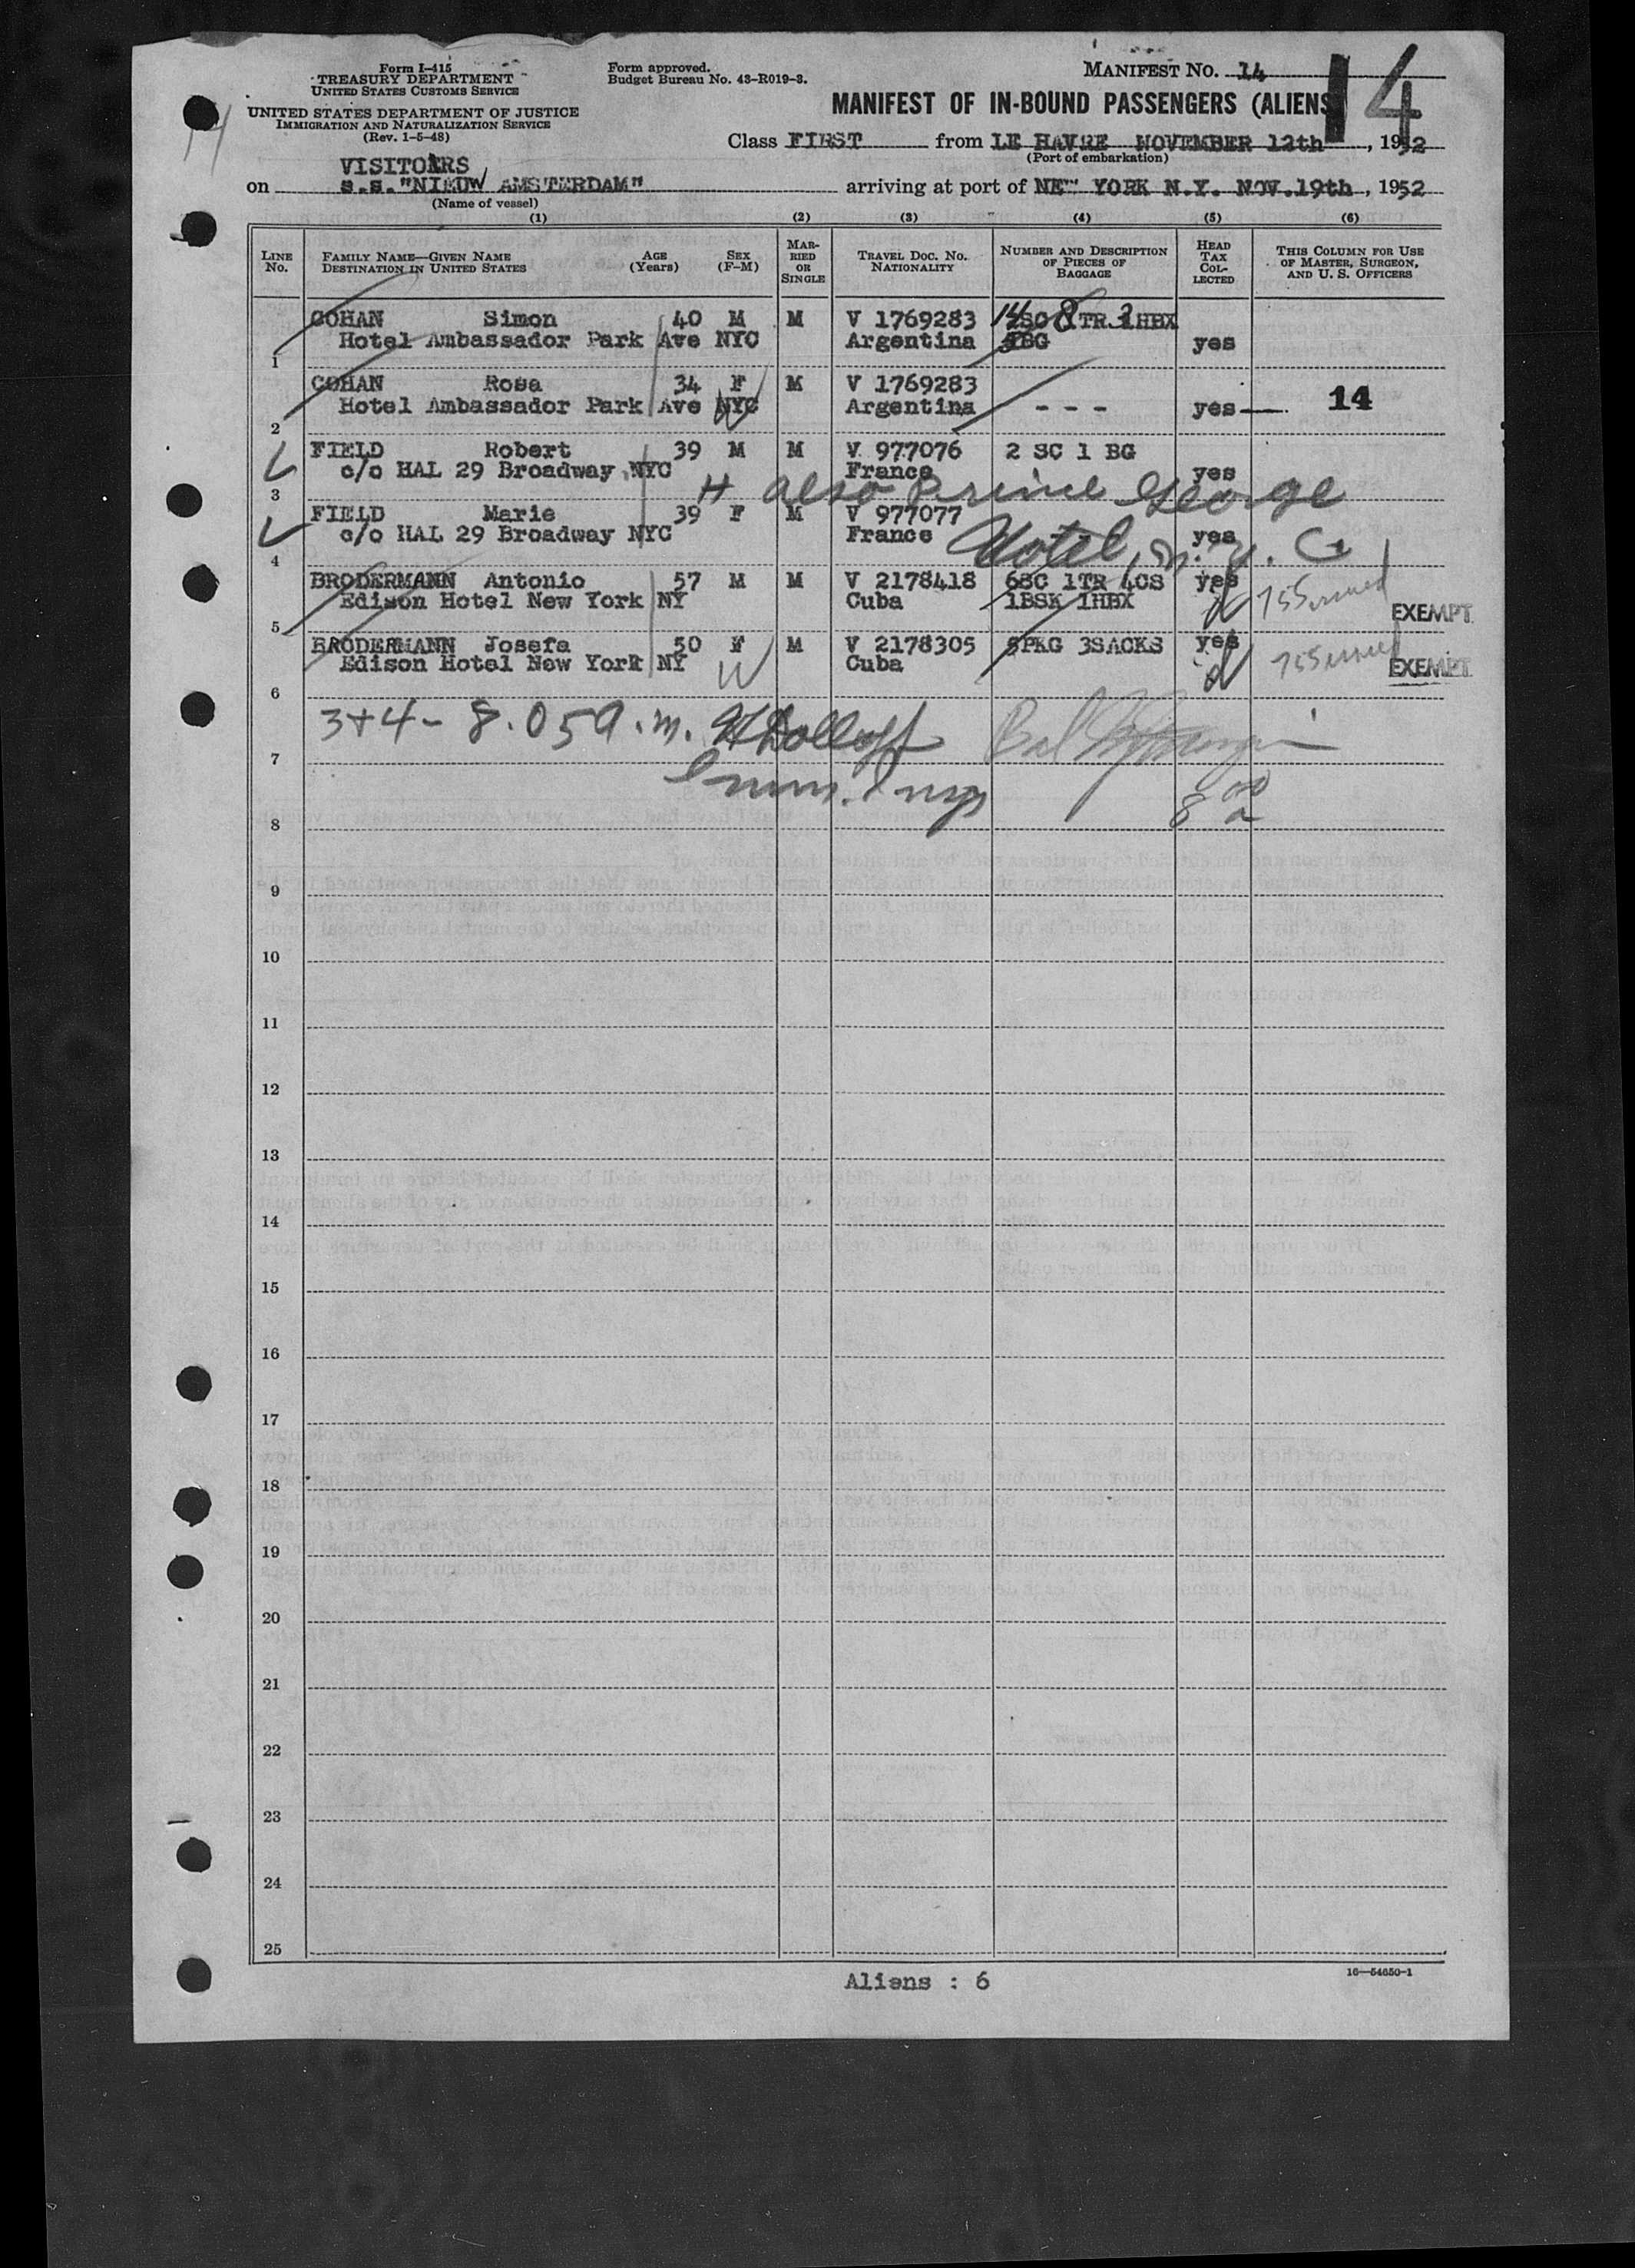 Form I-415
TREASURY DEPARTMENT
UNITED STATES CUSTOMS SERVICE
UNITED STATES DEPARTMENT OF JUSTICE
IMMIGRATION AND NATURALIZATION SERVICE
(Rev. 1-5-48)
Form approved.
Budget Bureau No. 43-R019-3.
MANIFEST NO. 14
14
14
MANIFEST OF IN-BOUND PASSENGERS (ALIENS
Class FIRST from LE HAVRE NOVEMBER 12th, 1952
(Port of embarkation)
VISITORS
on s.s."NIEUW AMSTERDAM" arriving at port of NEW YORK N.Y. NOV.19th, 1952
(Name of vessel)
(1) (2) (3) (4) (5) (6)
LINE NO. FAMILY NAME—GIVEN NAME DESTINATION IN UNITED STATES AGE (Years) SEX (F-M) MARRIED OR SINGLE TRAVEL DOC. NO. NATIONALITY NUMBER AND DESCRIPTION OF PIECES OF BAGGAGE HEAD TAX COLLECTED THIS COLUMN FOR USE OF MASTER, SURGEON, AND U. S. OFFICERS
COHAN Simon 40 M M V 1769283 14 SC 8 TR 2 HBX
1 Hotel Ambassador Park Ave NYC Argentina BG yes
COHAN Rosa 34 F M V 1769283
2 Hotel Ambassador Park Ave NYC Argentina - - - yes 14
FIELD Robert 39 M M V 977076 2 SC 1 BG
3 c/o HAL 29 Broadway NYC France yes
H also Prince George
FIELD Marie 39 F M V 977077
4 c/o HAL 29 Broadway NYC France yes
Hotel, n.y.C
BRODERMANN Antonio 57 M M V 2178418 6SC 1TR 4CS yes
5 Edison Hotel New York NY Cuba 1BSK 1HBX EXEMPT
BRODERMANN Josefa 50 F M V 2178305 5PKG 3SACKS yes
6 Edison Hotel New York NY Cuba EXEMPT
3+4- 8.05 a.m.
7
Imm. Insp
8
9
10
11
12
13
14
15
16
17
18
19
20
21
22
23
24
25
Aliens : 6
16—54650-1